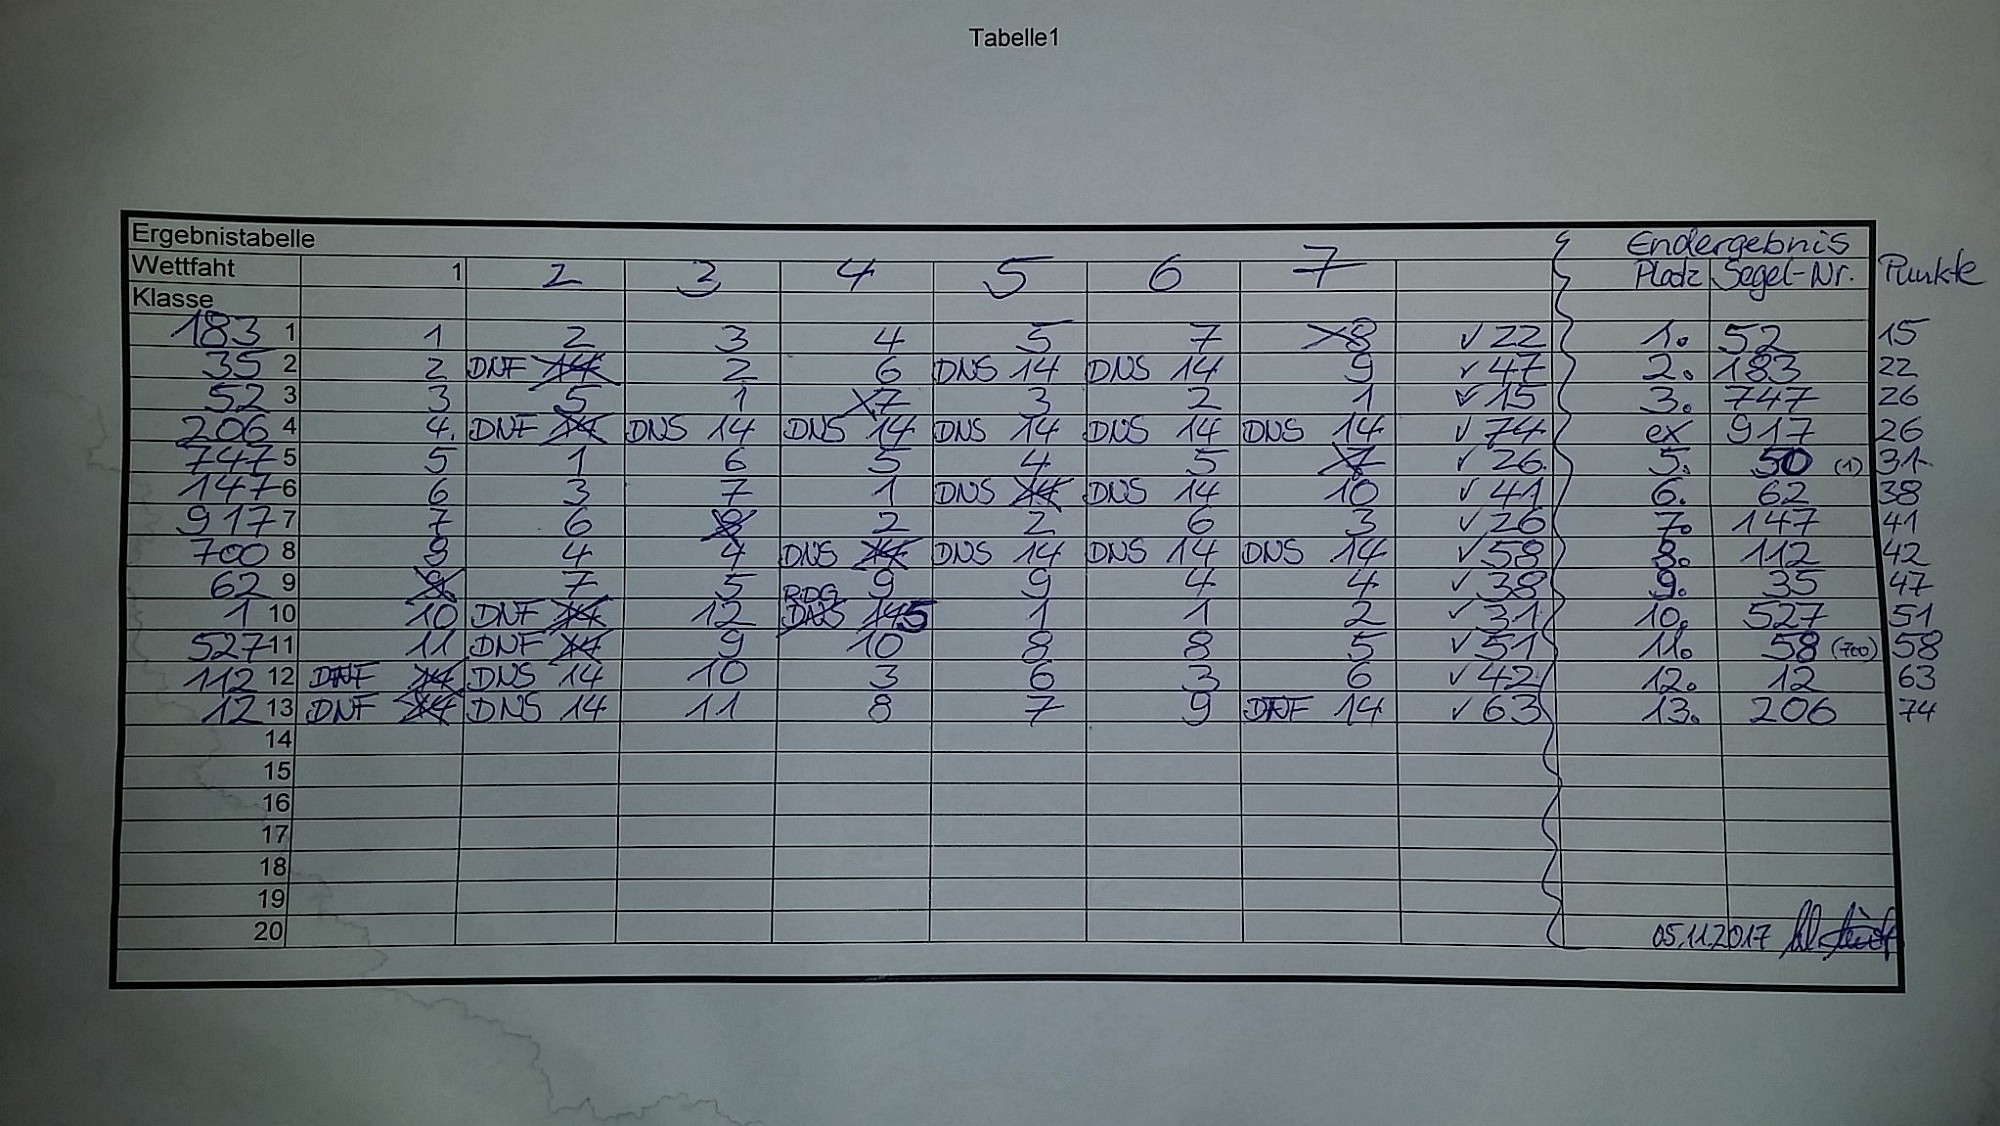 Tabelle1
Ergebnistabelle Endergebnis
Wettfaht 1 2 3 4 5 6 7 Platz Segel-Nr. Punkte
Klasse
183 1 1 2 3 4 5 7 8 ✓ 22 1. 52 15
35 2 2 DNF 14 2 6 DNS 14 DNS 14 9 ✓ 47 2. 183 22
52 3 3 5 1 7 3 2 1 ✓ 15 3. 747 26
206 4 4. DNF 14 DNS 14 DNS 14 DNS 14 DNS 14 DNS 14 ✓ 74 ex 917 26
747 5 5 1 6 5 4 5 7 ✓ 26. 5. 50 (1) 31
147 6 6 3 7 1 DNS 14 DNS 14 10 ✓ 41 6. 62 38
917 7 7 6 8 2 2 6 3 ✓ 26 7. 147 41
700 8 8 4 4 DNS 14 DNS 14 DNS 14 DNS 14 ✓ 58 8. 112 42
62 9 9 7 5 9 9 4 4 ✓ 38 9. 35 47
1 10 10 DNF 14 12 RDG DNS 14 5 1 1 2 ✓ 31 10. 527 51
527 11 11 DNF 14 9 10 8 8 5 ✓ 51 11. 58 (700) 58
112 12 DNF 14 DNS 14 10 3 6 3 6 ✓ 42 12. 12 63
12 13 DNF 14 DNS 14 11 8 7 9 DNF 14 ✓ 63 13. 206 74
14
15
16
17
18
19
20 05.11.2017